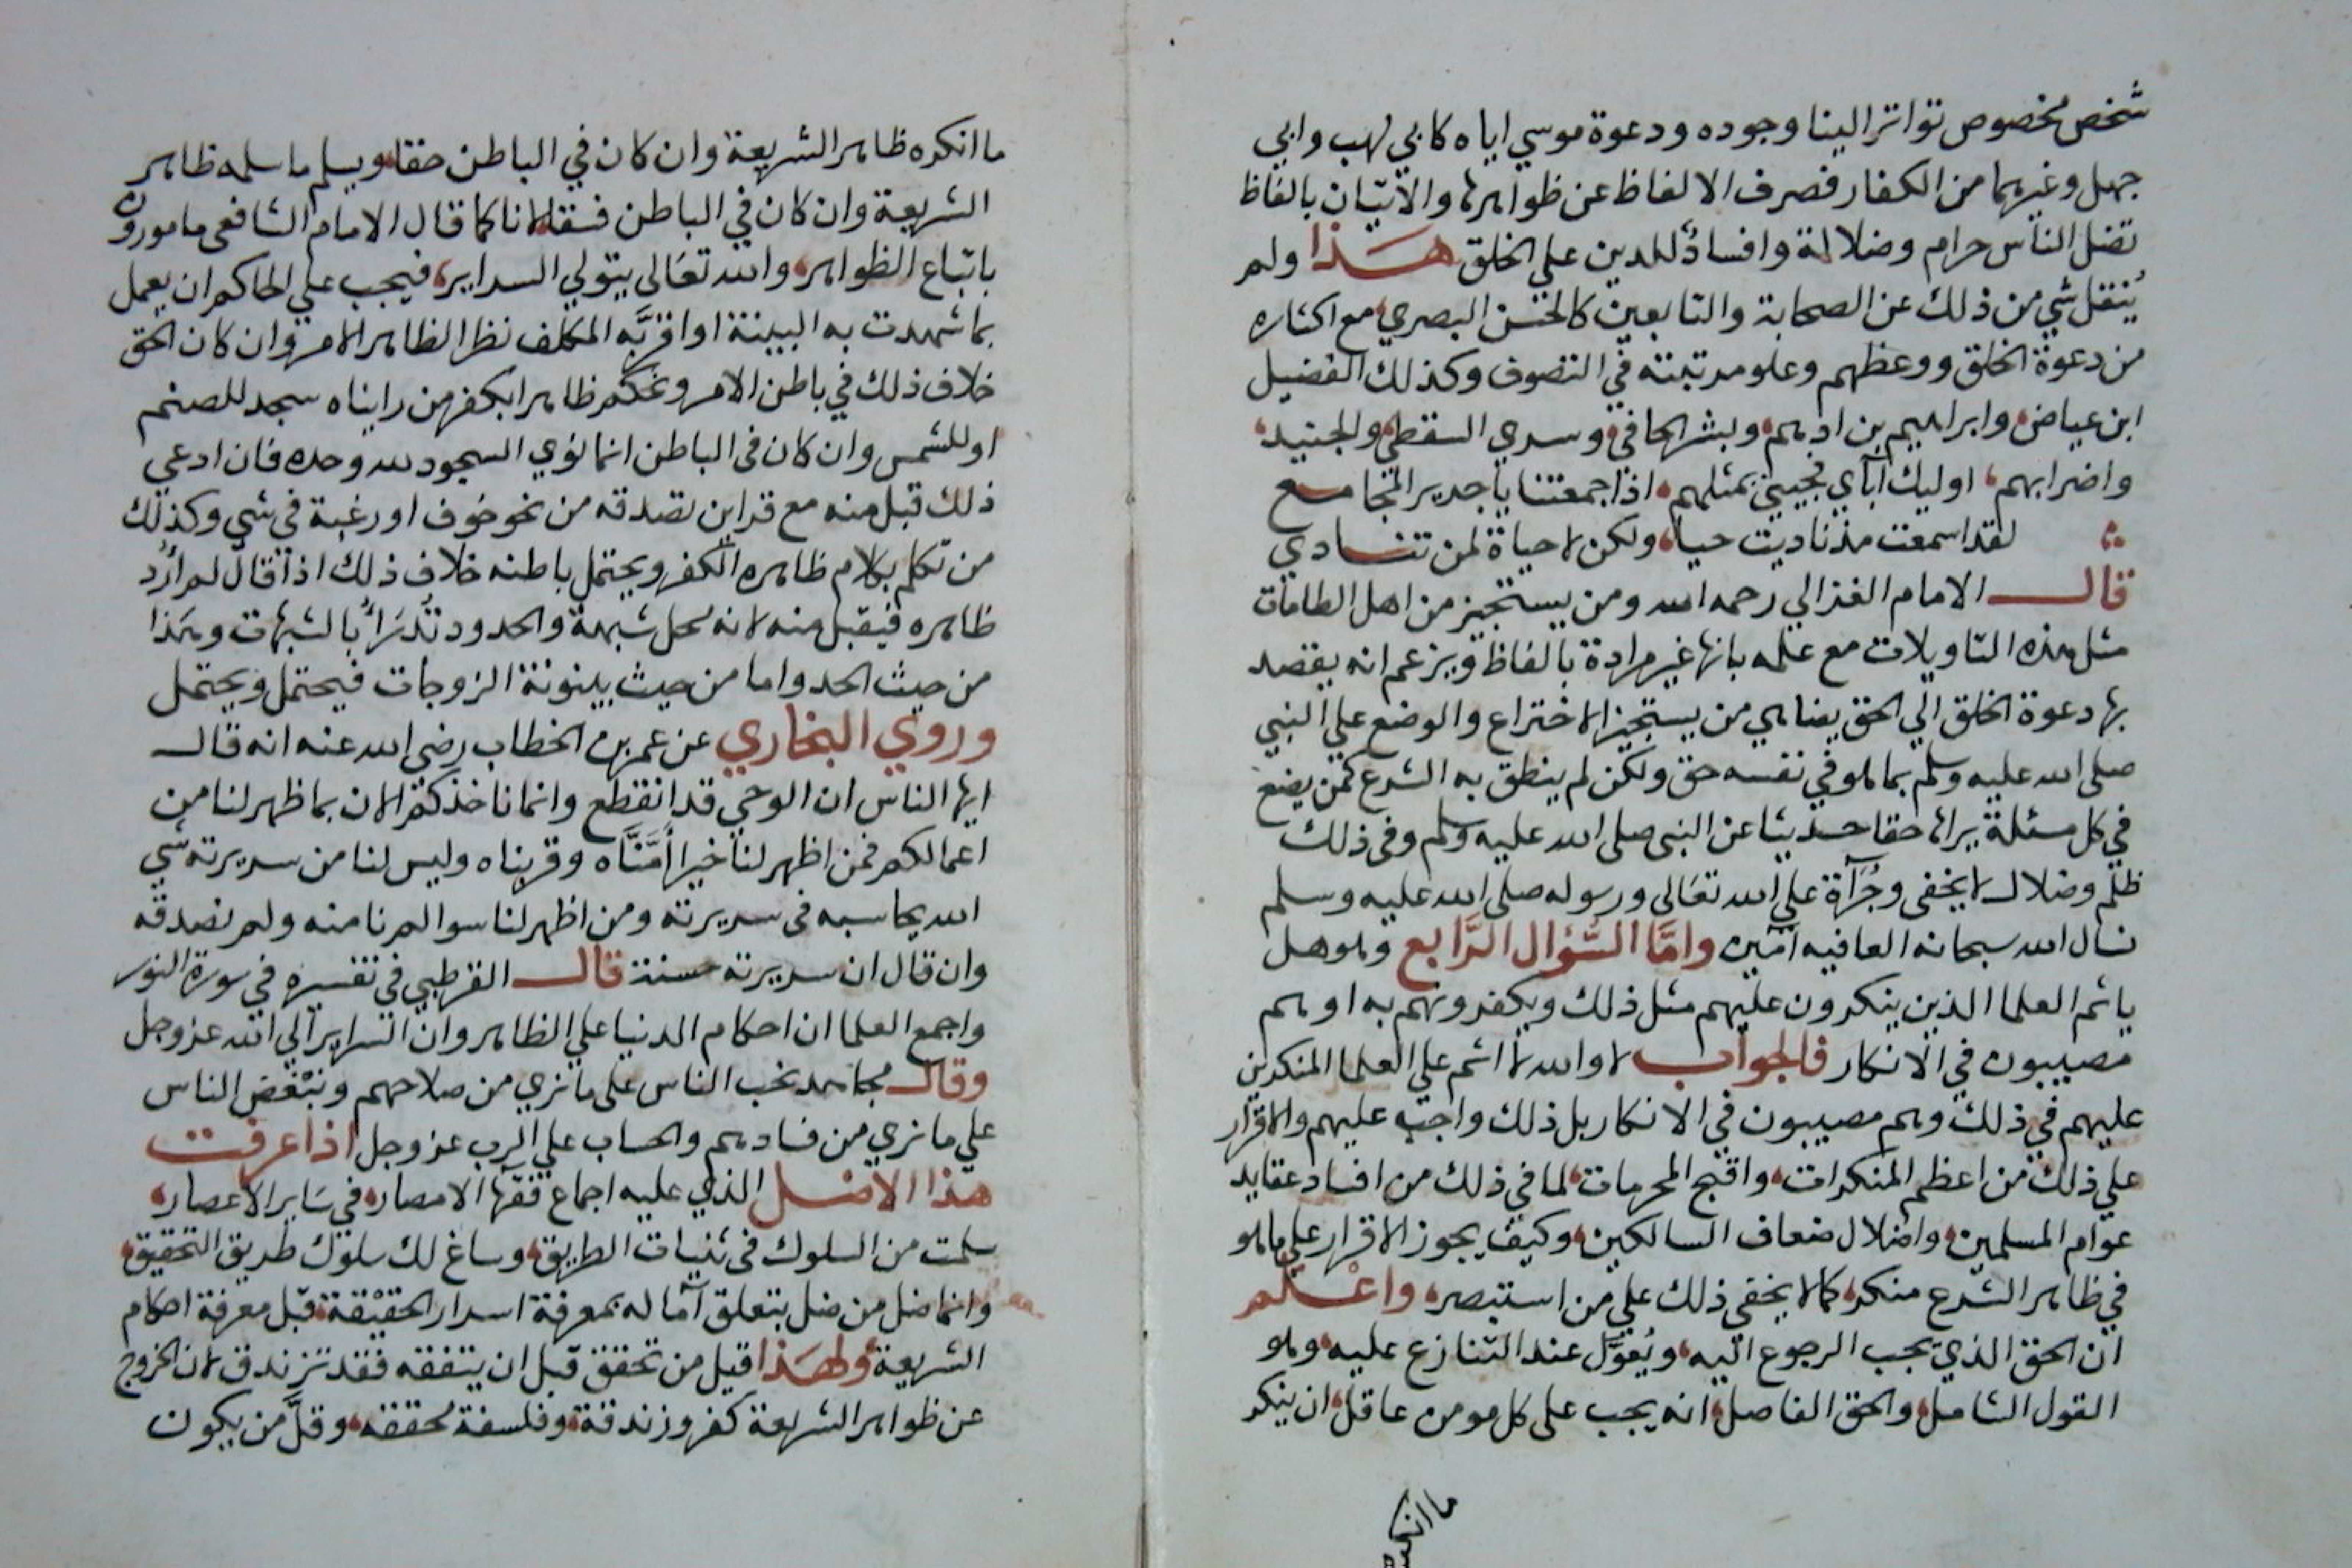 شخص مخصوص تواتر الينا وجوده ودعوة موسي اياه كابي لهب وابي
جهل وغيرهما من الكفار فصرف الالفاظ عن ظواهرها والاتيان بالفاظ
تضل الناس حرام وضلالة وافساد للدين علي الخلق هذا ولم
يُنقل شي من ذلك عن الصحابة والتابعين كالحسن البصري مع اكثاره
من دعوة الخلق ووعظهم وعلو مرتبته في التصوف وكذلك الفضيل
ابن عياض وابراهيم بن ادهم وبشر الحافي وسري السقطي والجنيد
واضرابهم اوليك آبآي فجيني بمثلهم اذا جمعتنا يا جرير المجامع
لقد اسمعت مذ ناديت حيا ولكن لا حياة لمن تنادي
قال الامام الغزالي رحمه الله ومن يستجيز من اهل الطامات
مثل هذه التاويلات مع علمه بانها غير مرادة بالفاظ ويزعم انه يقصد
بها دعوة الخلق الي الحق يضاهي من يستجيز الاختراع والوضع علي النبي
صلى الله عليه وسلم بما هو في نفسه حق ولكن لم ينطق به الشرع كمن يضع
في كل مسئلة يراها حقا حديثا عن النبي صلى الله عليه وسلم وفى ذلك
ظلم وضلال لا يخفى وجُرآة علي الله تعالى ورسوله صلى الله عليه وسلم
نسال الله سبحانه العافيه آمين وامَّا السُّؤال الرَّابع وهو هل
ياثم العلما الذين ينكرون عليهم مثل ذلك ويكفرونهم به او هم
مصيبون في الانكار فالجواب لا والله لا اثم علي العلما المنكرين
عليهم في ذلك وهم مصيبون في الانكار بل ذلك واجب عليهم والاقرار
علي ذلك من اعظم المنكرات واقبح المحرمات لما في ذلك من افساد عقايد
عوام المسلمين واضلال ضعاف السالكين وكيف يجوز الاقرار علي ما هو
في ظاهر الشرع منكر كما لا يخفي ذلك علي من استبصر واعلم
ان الحق الذي يجب الرجوع اليه ويُعوَّل عند التنازع عليه وهو
القول الشامل والحق الفاصل انه يجب على كل مومن عاقل ان ينكر
ما انكره
ما انكره ظاهر الشريعة وان كان في الباطن حقا ويسلم ما سلمه ظاهر
الشريعة وان كان في الباطن فسقا لانا كما قال الامام الشافعي مامورون
باتباع الظواهر والله تعالى يتولي السراير فيجب علي الحاكم ان يعمل
بما شهدت به البينة او اقرَّبه المكلف نظرا لظاهر الامر وان كان الحق
خلاف ذلك في باطن الامر ونحكم ظاهرا بكفر من رايناه سجد للصنم
او للشمس وان كان في الباطن انما نوي السجود لله وحده فان ادعي
ذلك قبل منه مع قراين تصدقه من نحو خوف او رغبة في شي وكذلك
من تكلم بكلام ظاهره الكفر ويحتمل باطنه خلاف ذلك اذا قال لم أرد
ظاهره فيقبل منه لانه محل شبهة والحدود تُدرَأُ بالشبهات وهذا
من حيث الحد واما من حيث بينونة الزوجات فيحتمل ويحتمل
وروي البخاري عن عمر بن الخطاب رضى الله عنه انه قال
ايها الناس ان الوحي قد انقطع وانما ناخذكم الان بما ظهر لنا من
اعمالكم فمن اظهر لنا خيرا أمَّنَّاه وقربناه وليس لنا من سريرته شي
الله يحاسبه في سريرته ومن اظهر لنا سوا لم نامنه ولم نصدقه
وان قال ان سريرته حسنة قال القرطبي في تفسيره في سورة النور
واجمع العلما ان احكام الدنيا علي الظاهر وان السراير الي الله عز وجل
وقال مجاهد نحب الناس على ما نري من صلاحهم ونبغض الناس
علي ما نري من فسادهم والحساب علي الرب عز وجل اذا عرفت
هذا الاصل الذي عليه اجماع فقها الامصار في سَاير الاعصار
سلمت من السلوك في ثنيات الطريق وساغ لك سلوك طريق التحقيق
وانما ضل من ضل بتعلق آماله بمعرفة اسرار الحقيقة قبل معرفة احكام
الشريعة ولهذا قيل من تحقق قبل ان يتفقه فقد تزندق لان الخروج
عن ظواهر الشريعة كفر وزندقة وفلسفة محققه وقلَّ من يكون